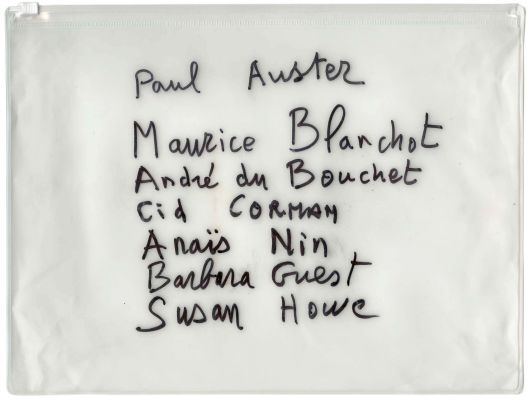 Paul Auster
Maurice Blanchot
André du Bouchet
Cid CORMAN
Anaïs Nin
Barbara Guest
Susan Howe